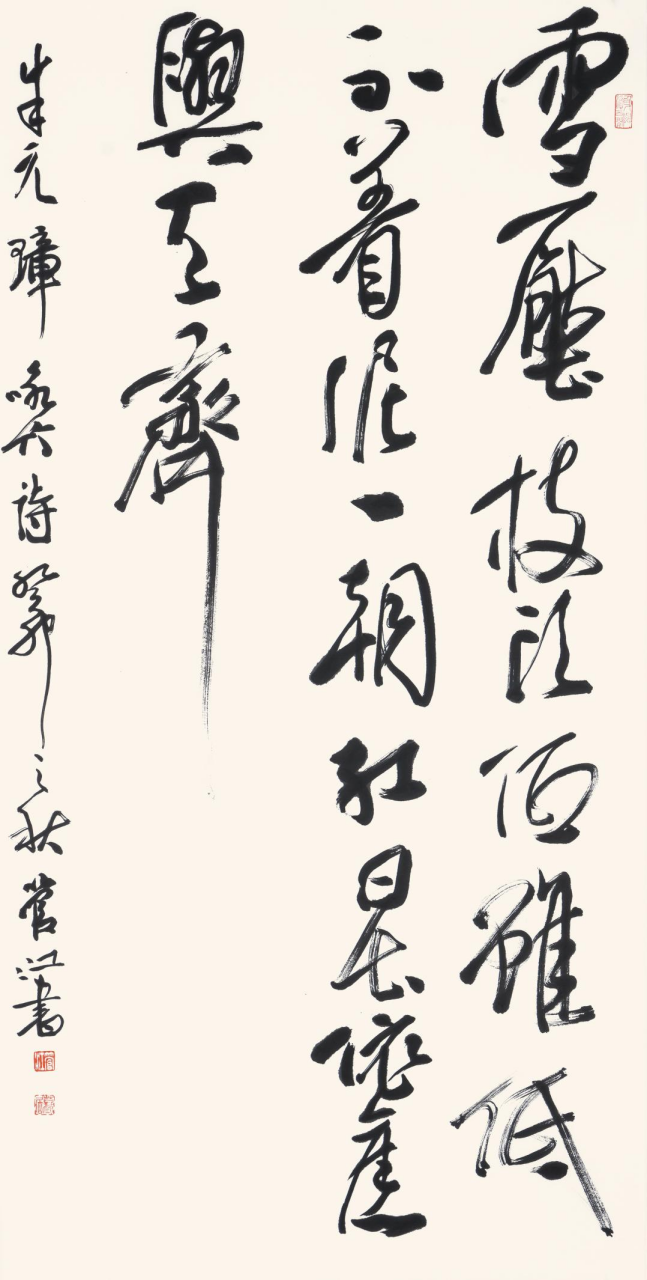 雪壓枝頭低雖低
不着泥一朝紅日出依舊
與天齊
朱元璋咏竹詩癸卯之秋管江書